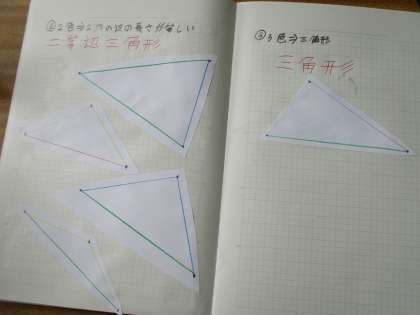 ②2色⇒2つの辺の長さが等しい
二等辺三角形
③3色⇒三角形
三角形